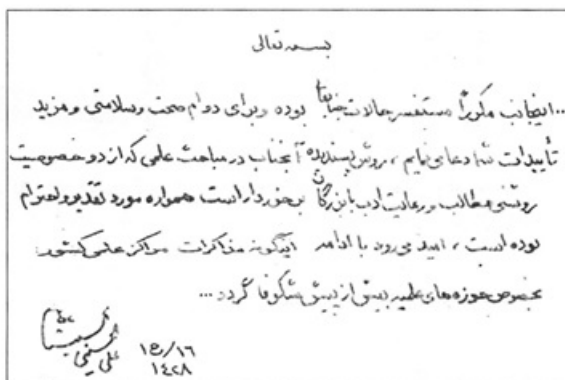 بسمه تعالی
... اینجانب مکرراً مستفسر حالات جنابعالی بوده و برای دوام صحت و سلامتی و مزید
تأییدات شما دعا می‌نمایم، روش پسندیده آنجناب در مباحث علمی که از دو خصوصیت
روشنی مطالب و رعایت ادب با بزرگان برخوردار است همواره مورد تقدیر و احترام
بوده است، امید می‌رود با ادامه اینگونه مذاکرات مراکز علمی کشور
بخصوص حوزه‌های علمیه بیش از پیش شکوفا گردد ...
علی الحسینی السیستانی
۱۶/ج۱
۱۴۲۸